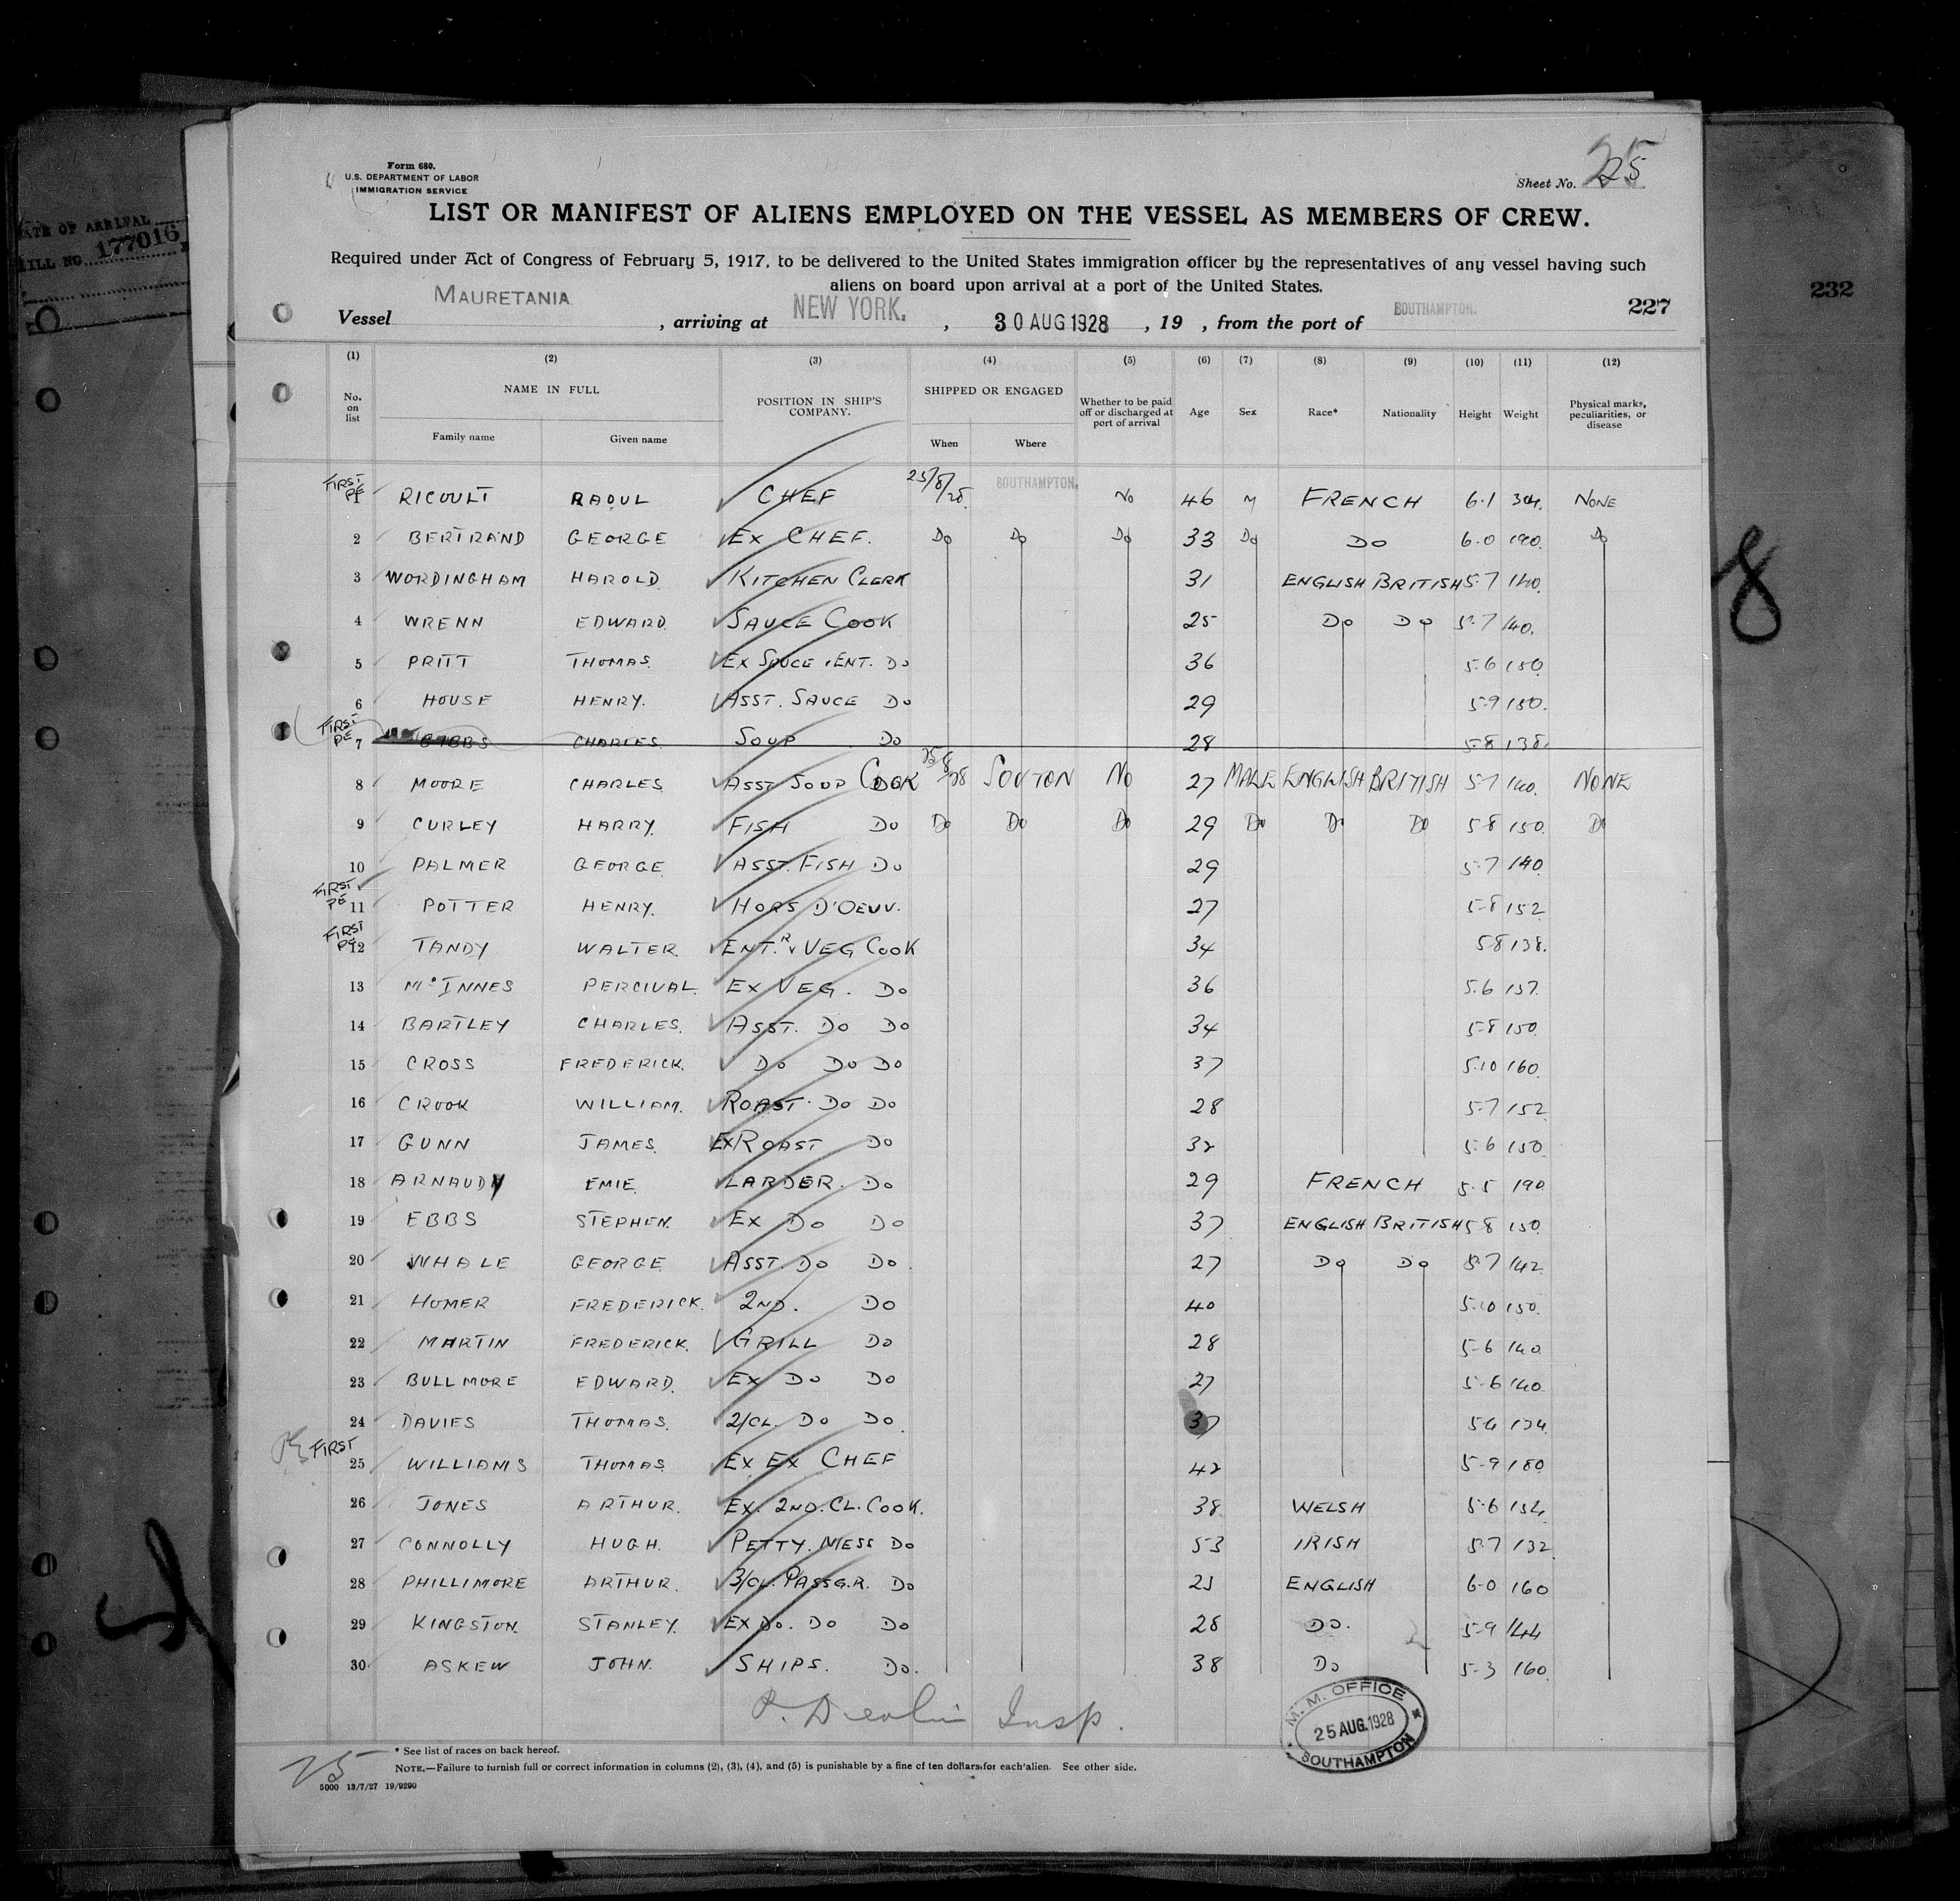 Form 680.
U.S. DEPARTMENT OF LABOR
IMMIGRATION SERVICE
Sheet No. 25
LIST OR MANIFEST OF ALIENS EMPLOYED ON THE VESSEL AS MEMBERS OF CREW.
Required under Act of Congress of February 5, 1917, to be delivered to the United States immigration officer by the representatives of any vessel having such
aliens on board upon arrival at a port of the United States.
Vessel MAURETANIA, arriving at NEW YORK., 30 AUG 1928, 19 , from the port of SOUTHAMPTON. 227
DATE OF ARRIVAL
BILL NO 177016
232
8
(1) (2) (3) (4) (5) (6) (7) (8) (9) (10) (11) (12)
No. on list NAME IN FULL Family name Given name POSITION IN SHIP'S COMPANY. SHIPPED OR ENGAGED When Where Whether to be paid off or discharged at port of arrival Age Sex Race* Nationality Height Weight Physical marks, peculiarities, or disease
FIRST PE 1 RICOULT RAOUL CHEF 25/8/28 SOUTHAMPTON. No 46 M FRENCH 6.1 304. NONE
2 BERTRAND GEORGE EX CHEF. Do Do Do 33 Do Do 6.0 190. Do
3 WORDINGHAM HAROLD KITCHEN CLERK 31 ENGLISH BRITISH 5.7 140.
4 WRENN EDWARD. SAUCE COOK 25 Do Do 5.7 140.
5 PRITT THOMAS. EX SAUCE & ENT. Do 36 5.6 150.
6 HOUSE HENRY. ASST. SAUCE Do 29 5.9 150.
FIRST PE 7 GIBBS CHARLES. SOUP Do 28 5.8 138.
8 MOORE CHARLES ASST SOUP COOK 25/8/28 SOUTON NO 27 MALE ENGLISH BRITISH 5.7 140. NONE
9 CURLEY HARRY. FISH Do Do Do Do 29 Do Do Do 5.8 150. Do
10 PALMER GEORGE ASST. FISH Do 29 5.7 140.
FIRST PE 11 POTTER HENRY. HORS D'OEUV. 27 5.8 152
FIRST PE 12 TANDY WALTER. ENT.R & VEG COOK 34 5.8 138.
13 McINNES PERCIVAL. EX VEG. Do 36 5.6 157.
14 BARTLEY CHARLES. ASST. Do Do 34 5.8 150.
15 CROSS FREDERICK. Do Do Do 37 5.10 160.
16 CROOK WILLIAM. ROAST. Do Do 28 5.7 152
17 GUNN JAMES. EX ROAST Do 32 5.6 150.
18 ARNAUDY EMIE. LARDER. Do 29 FRENCH 5.5 190
19 EBBS STEPHEN. EX Do Do 37 ENGLISH BRITISH 5.8 150
20 WHALE GEORGE ASST. Do Do. 27 Do Do 5.7 142.
21 HOMER FREDERICK. 2ND. Do 40 5.10 150.
22 MARTIN FREDERICK. GRILL Do 28 5.6 140.
23 BULLMORE EDWARD. EX Do Do 27 5.6 140.
24 DAVIES THOMAS. 2/CL. Do Do. 37 5.6 134.
PE FIRST 25 WILLIAMS THOMAS. EX EX CHEF 42 5.9 180
26 JONES ARTHUR. EX. 2ND. CL. COOK. 38. WELSH 5.6 154.
27 CONNOLLY HUGH. PETTY. MESS Do 53 IRISH 5.7 132
28 PHILLIMORE ARTHUR. 3/CL. PASSGR. Do 25 ENGLISH 6.0 160
29 KINGSTON. STANLEY. EX Do. Do Do 28 Do. 5.9 144
30. ASKEW JOHN. SHIPS. Do. 38 Do 5.3 160.
Insp.
M. M. OFFICE
25 AUG. 1928
SOUTHAMPTON
* See list of races on back hereof.
25
NOTE.—Failure to furnish full or correct information in columns (2), (3), (4), and (5) is punishable by a fine of ten dollars for each alien. See other side.
5000 13/7/27 19/9290